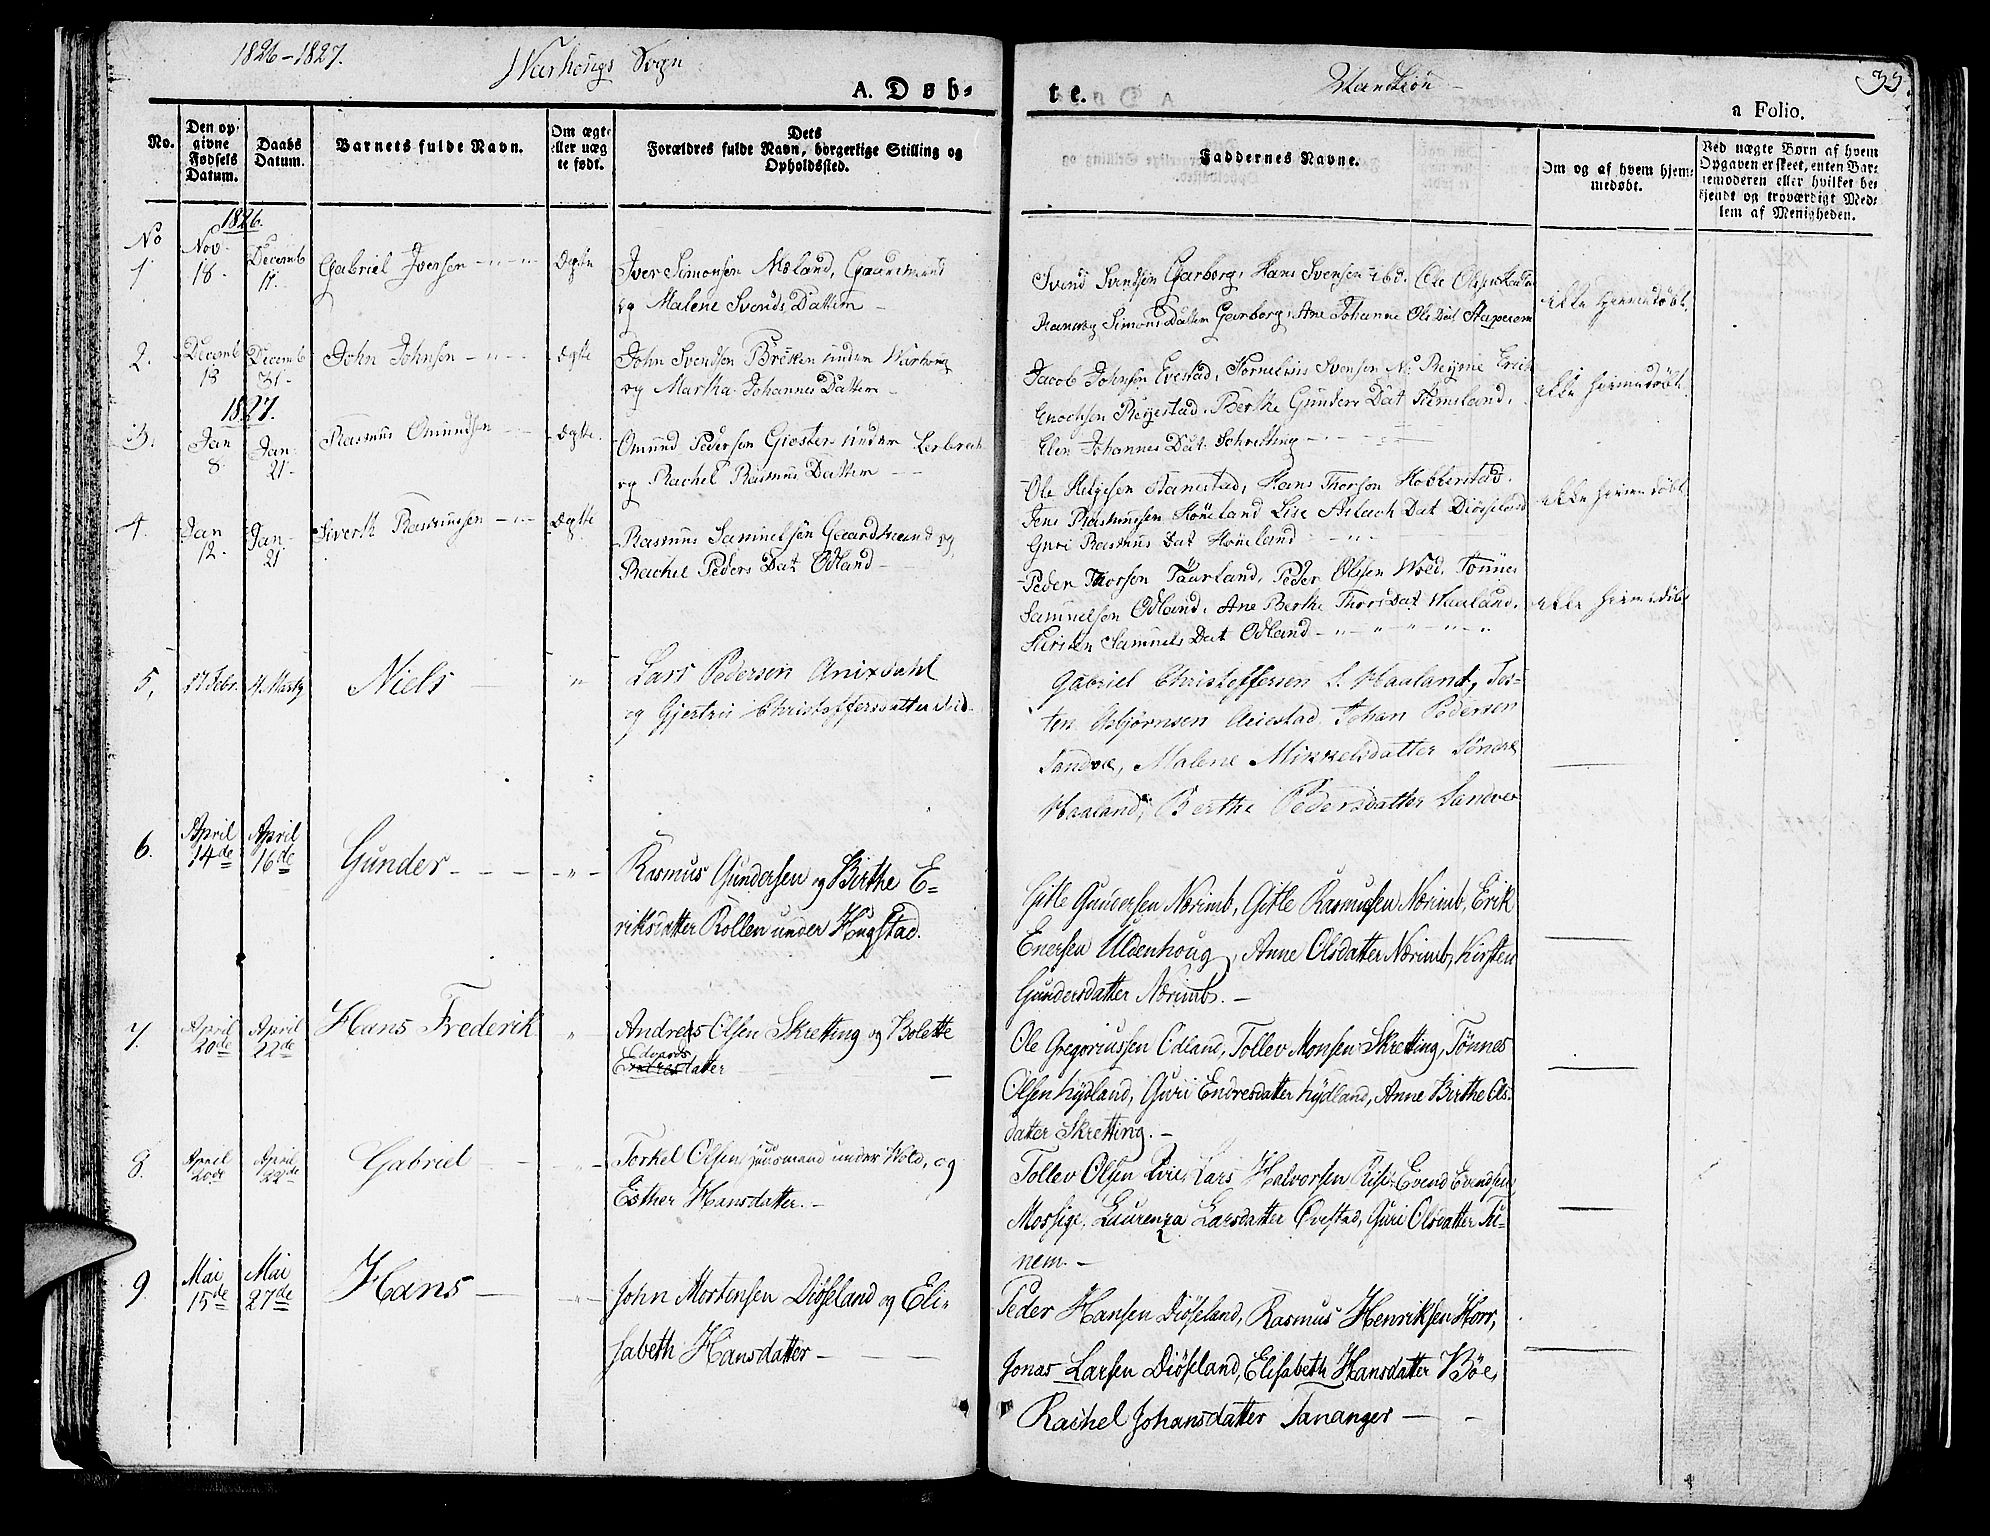 1826-1827. Warhougs Sogn
A. Døb-
No.
Den op-
givne
Fødsels
Datum.
Daabs
Datum.
Barnets fulde Navn.
Om ægte
eller uæg
te født.
Dets
Forældres fulde Navn, borgerlige Stilling og
Opholdssted.
te. Mandkiøn
33.
a Folio.
Faddernes Navne.
Om og af hvem hjem-
medøbt.
Ved uægte Børn af hvem
Opgaven er skeet, enten Bar-
nemoderen eller hvilket be-
kjendt og troværdigt Med-
lem af Menigheden.
1826.
No
1. Nov. 18. Decemb 11. Gabriel Iversen Ægte
Iver Simonsen Møland, Gaardmand
og Malene Svends Datter
Svend Svendsen Garborg, Hans Svensen ibd. Ole Olsen
Simons Datter Garborg, Ane Johanne Ols Dat Stapnem
ikke hjemmedøbt.
2. Decemb 13 Decemb 31. John Johnsen Ægte
John Svendsen Brekken under Warhoug
og Martha Johannes Datter
Jacob Johnsen Evestad, Kornelius Svensen N. Reyme Erik
Enochsen Reyestad, Berthe Gunders Dat Hemsland,
Elen Johannes Dat. Schretting
ikke hjemmedøbt.
1827.
3. Jan 8. Jan 21. Rasmus Omundsen Ægte.
Omund Pedersen Giesten under Lerbrech
og Rachel Rasmus Datter
Ole Helgesen Stanestad, Hans Thorsen Hobberstad.
Jens Rasmussen Høieland Lise Aslach Dat Diøseland
Guri Rasmus Dat Høieland
ikke hjemmedøbt
4. Jan 12. Jan. 21 Siverth Rasmussen Ægte
Rasmus Samuelsen Gaardmand og
Rachel Peders Dat Odland
Peder Thorsen Taarland, Peder Olsen Wold. Tønnes
Samuelsen Odland, Ane Berthe Thors Dat Haaland.
Kirsten Samuels Dat Odland
ikke hjemmedøbt
5. 17 Febr. 4. Marty Niels "
Lars Pedersen Anixdahl
og Gjertru Christoffersdatter ibid.
Gabriel Christoffersen S. Haaland, Tos-
ten Asbjørnsen Aniestad Johan Pedersen
Sandve, Malene Mikkelsdatter Søndre
Haaland, Berthe Pedersdatter Sandve
6. April 14de April 16de Gunder "
Rasmus Gundersen og Birthe E-
riksdatter Rollen under Hugstad.
Gitle Gundersen Nærimb, Gitle Rasmussen Nærimb, Erik
Enersen Uldenhoug, Anne Olsdatter Nærimb, Kirsten
Gundersdatter Nærimb.
7. April 20de April 22de Hans Frederik "
Andreas Olsen Skretting og Bolette
Edvards
datter
Ole Gregoriussen Odland, Tollev Monsen Skretting, Tønnes
Olsen Lydland, Guri Endresdatter Lydland, Anne Birthe Ols-
datter Skretting.
8. April 20de April 22de Gabriel "
Torkel Olsen Huusmand under Wold, og
Esther Hansdatter.
Tollev Olsen Lvie, Lars Halvorsen Risi, Evend Evendsen
Mossige, Laurenza Larsdatter Ovestad, Guri Olsdatter Tu-
nem.
9. Mai 15de Mai 27de Hans "
John Mortensen Diøseland og Eli-
sabeth Hansdatter
Peder Hansen Diøseland, Rasmus Henriksen Horr,
Jonas Larsen Diøseland, Elisabeth Hansdatter Bøe,
Rachel Johansdatter Tananger